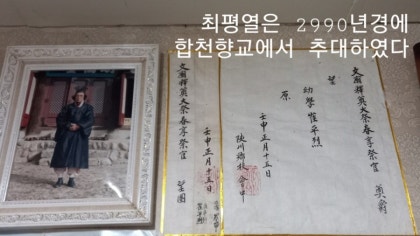 최평열은 2990년경에
합천향교에서 추대하였다
文廟釋奠大祭春享祭官 奠爵
望
幼學 崔平烈
原
壬申正月十五日
陜川鄕校 會中
文廟釋奠大祭春享祭官 望圈
壬申正月十五日